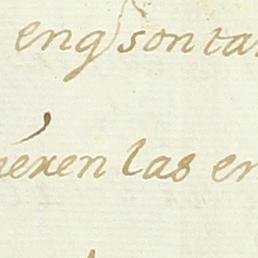 eng son tan
nexen las en